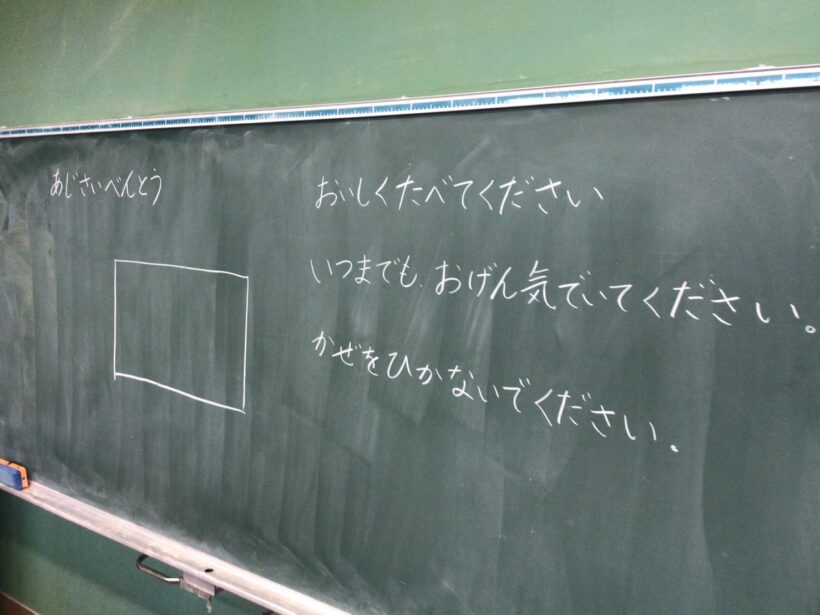 あじさいべんとう
おいしくたべてください
いつまでも、おげん気でいてください。
かぜをひかないでください。